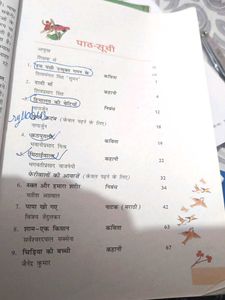 पाठ-सूची
आमुख
1. हम पंछी उन्मुक्त गगन के कविता 1
शिवमंगल सिंह 'सुमन'
2. दादी माँ कहानी
शिवप्रसाद सिंह
3. हिमालय की बेटियाँ निबंध
नागार्जुन
syllabus
(केवल पढ़ने के लिए)
नागार्जुन
4. कठपुतली कविता
भवानीप्रसाद मिश्र
5. मिठाईवाला कहानी 22
भगवतीप्रसाद वाजपेयी
फेरीवालों की आवाज़ें (केवल पढ़ने के लिए)
6. रक्त और हमारा शरीर निबंध 34
यतीश अग्रवाल
7. पापा खो गए नाटक (मराठी) 42
विजय तेंदुलकर
8. शाम-एक किसान कविता 63
सर्वेश्वरदयाल सक्सेना
9. चिड़िया की बच्ची कहानी 67
जैनेंद्र कुमार